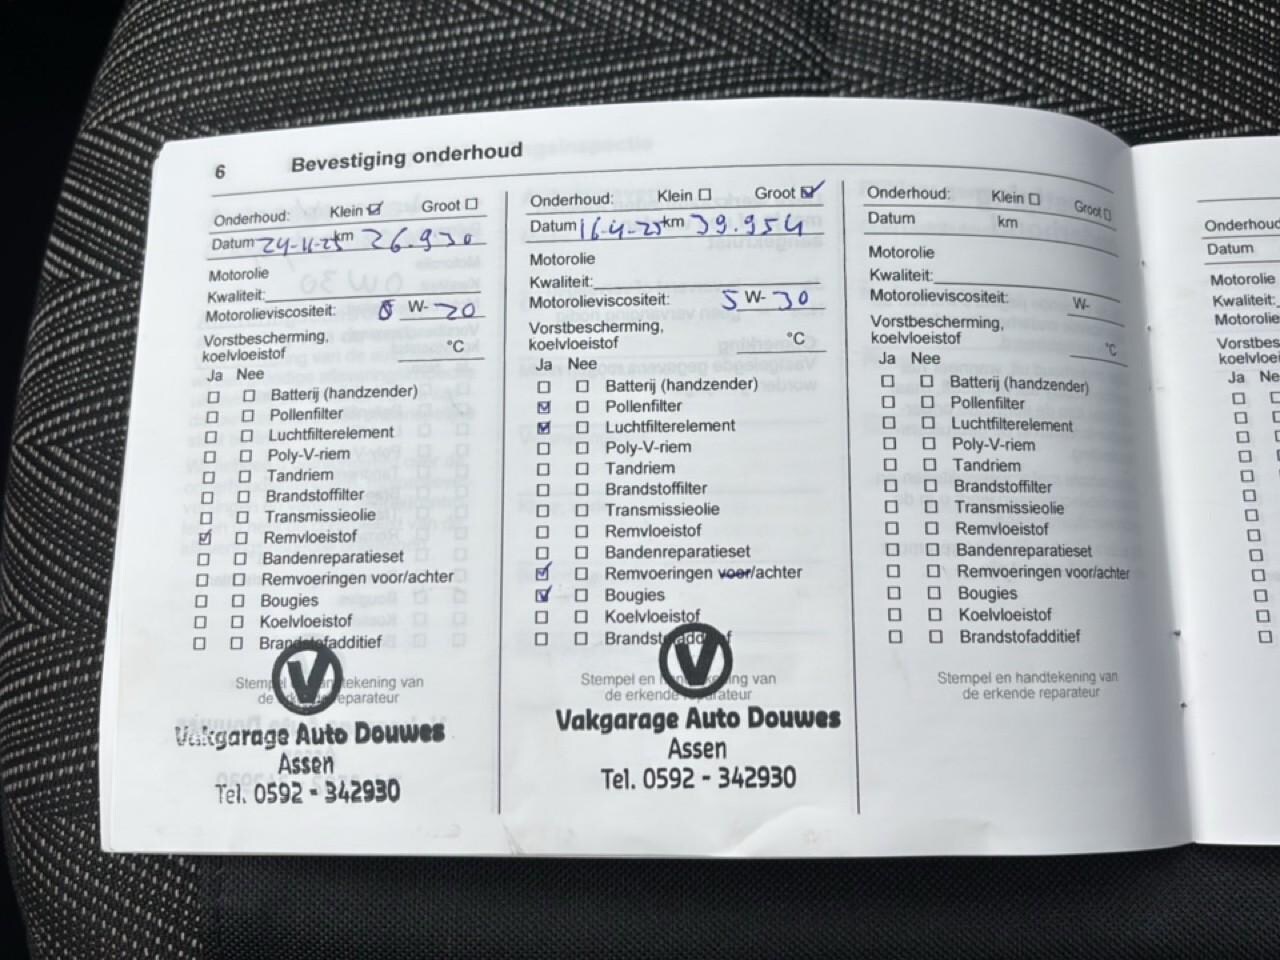 6 Bevestiging onderhoud
Onderhoud: Klein ☑ Groot ☐
Datum km 26.930
Motorolie
Kwaliteit:
Motorolieviscositeit: 0 W- 20
Vorstbescherming,
koelvloeistof °C
Ja Nee
☐ ☐ Batterij (handzender)
☐ ☐ Pollenfilter
☐ ☐ Luchtfilterelement
☐ ☐ Poly-V-riem
☐ ☐ Tandriem
☐ ☐ Brandstoffilter
☐ ☐ Transmissieolie
☑ ☐ Remvloeistof
☐ ☐ Bandenreparatieset
☐ ☐ Remvoeringen voor/achter
☐ ☐ Bougies
☐ ☐ Koelvloeistof
☐ ☐ Brandstofadditief
Stempel en handtekening van
de erkende reparateur
V
Vakgarage Auto Douwes
Assen
Tel. 0592 - 342930
Onderhoud: Klein ☐ Groot ☑
Datum 16-4-25 km 39.954
Motorolie
Kwaliteit:
Motorolieviscositeit: 5 W- 30
Vorstbescherming,
koelvloeistof °C
Ja Nee
☐ ☐ Batterij (handzender)
☑ ☐ Pollenfilter
☑ ☐ Luchtfilterelement
☐ ☐ Poly-V-riem
☐ ☐ Tandriem
☐ ☐ Brandstoffilter
☐ ☐ Transmissieolie
☐ ☐ Remvloeistof
☐ ☐ Bandenreparatieset
☑ ☐ Remvoeringen voor/achter
☑ ☐ Bougies
☐ ☐ Koelvloeistof
☐ ☐ Brandstofadditief
Stempel en handtekening van
de erkende reparateur
V
Vakgarage Auto Douwes
Assen
Tel. 0592 - 342930
Onderhoud: Klein ☐ Groot ☐
Datum km
Motorolie
Kwaliteit:
Motorolieviscositeit: W-
Vorstbescherming,
koelvloeistof °C
Ja Nee
☐ ☐ Batterij (handzender)
☐ ☐ Pollenfilter
☐ ☐ Luchtfilterelement
☐ ☐ Poly-V-riem
☐ ☐ Tandriem
☐ ☐ Brandstoffilter
☐ ☐ Transmissieolie
☐ ☐ Remvloeistof
☐ ☐ Bandenreparatieset
☐ ☐ Remvoeringen voor/achter
☐ ☐ Bougies
☐ ☐ Koelvloeistof
☐ ☐ Brandstofadditief
Stempel en handtekening van
de erkende reparateur
Onderhoud
Datum
Motorolie
Kwaliteit:
Motorolie
Vorstbes
koelvloei
Ja Ne